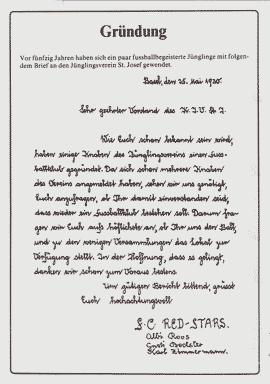 Gründung
Vor fünfzig Jahren haben sich ein paar fussballbegeisterte Jünglinge mit folgen-
dem Brief an den Jünglingsverein St. Josef gewendet.
Basel, den 25. Mai 1930.
Sehr geehrter Vorstand des K.J.V. St. J.
Wie Euch schon bekannt sein wird,
haben einige Knaben des Jünglingsvereins einen Fuss-
ballklub gegründet. Da sich schon mehrere Knaben
des Vereins angemeldet haben, sehen wir uns genötigt,
Euch anzufragen, ob Ihr damit einverstanden seid,
dass wieder ein Fussballklub bestehen soll. Darum fra-
gen wir Euch aufs höflichste an, ob Ihr uns den Ball,
und zu den wenigen Versammlungen das Lokal zur
Verfügung stellt. In der Hoffnung, dass es gelingt,
danken wir schon zum Voraus bestens.
Um gütigen Bericht bittend, grüsst
Euch hochachtungsvoll
F.C RED-STARS.
Albis Roos
Karl Zimmermann.